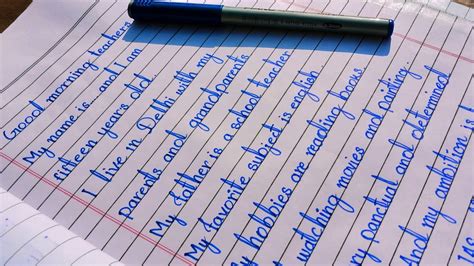 Good morning teachers
My name is ... and I am
fifteen years old.
I live in Delhi with my
parents and grandparents
My father is a school teacher
My favorite subject is english
My hobbies are reading books
watching movies and painting.
ry punctual and determined
And my ambition is